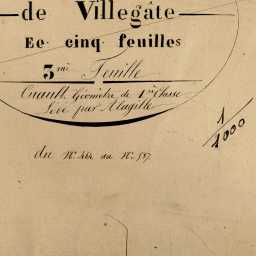 de Villegâte
En cinq feuilles
3me Feuille
Cuault, Géomètre de 1re Classe
Levé par Alagille
1/1000
du No 464 au No 557